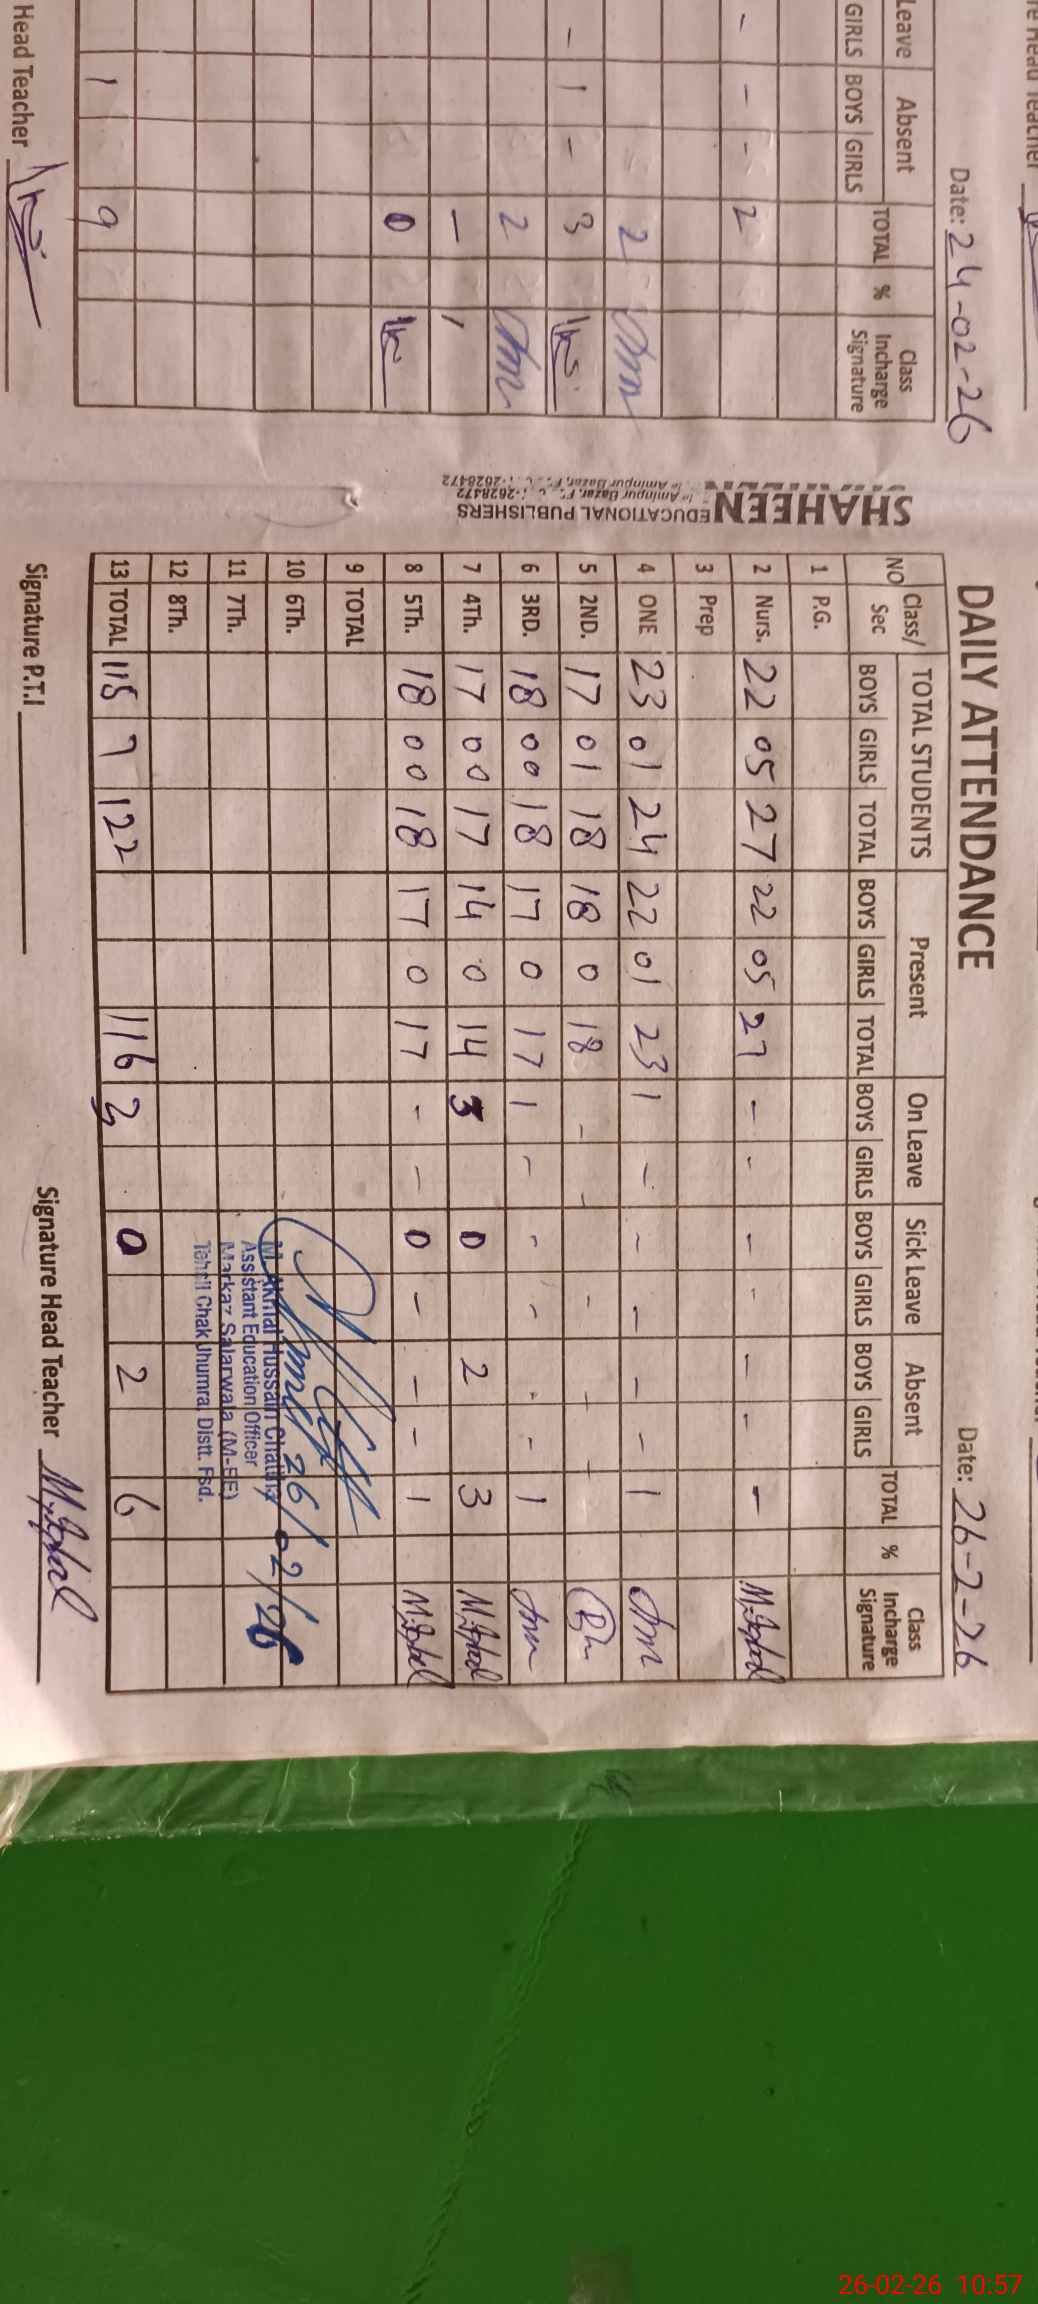 Leave Absent TOTAL % Class Incharge Signature
GIRLS BOYS GIRLS
Date: 24-02-26
- - - 2
2
- 1 - 3
2
-
0
1 9
Head Teacher
SHAHEEN EDUCATIONAL PUBLISHERS
Aminpur Bazar, 2628472
DAILY ATTENDANCE Date: 26-2-26
NO Class/ Sec TOTAL STUDENTS Present On Leave Sick Leave Absent TOTAL % Class Incharge Signature
BOYS GIRLS TOTAL BOYS GIRLS TOTAL BOYS GIRLS BOYS GIRLS BOYS GIRLS
1 P.G.
2 Nurs. 22 05 27 22 05 27 - - - - - - - M.Iqbal
3 Prep
4 ONE 23 01 24 22 01 23 1 - - - - - 1
5 2ND. 17 01 18 18 0 18 - - - - -
6 3RD. 18 00 18 17 0 17 1 - - - - - 1
7 4Th. 17 00 17 14 0 14 3 0 2 3 M.Iqbal
8 5Th. 18 00 18 17 0 17 - - 0 - - - 1 M.Iqbal
9 TOTAL
10 6Th.
11 7Th.
12 8Th.
13 TOTAL 115 7 122 116 3 0 2 6
26/02/26
M. Akmal Hussain Chattha
Assistant Education Officer
Markaz Salarwala (M-EE)
Tehsil Chak Jhumra, Distt. Fsd.
Signature P.T.I Signature Head Teacher M.Iqbal
26-02-26 10:57